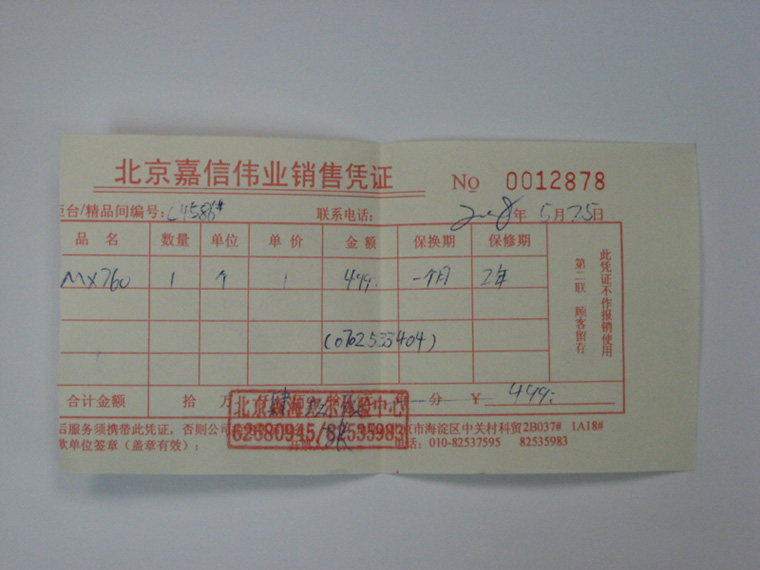 北京嘉信伟业销售凭证 No 0012878
柜台/精品间编号：L4586# 联系电话： 2008年5月25日
品名 数量 单位 单价 金额 保换期 保修期
MX760 1 个 1 499. 一个月 2年
(0762533404)
第二联 顾客留存
此凭证不作报销使用
合计金额 拾 万 分 ¥ 499.
北京 海 尔体验中心
62680945/82535983
后服务须携带此凭证，否则公司 京市海淀区中关村科贸2B037# 1A18#
款单位签章（盖章有效）： 开票 电话：010-82537595 82535983